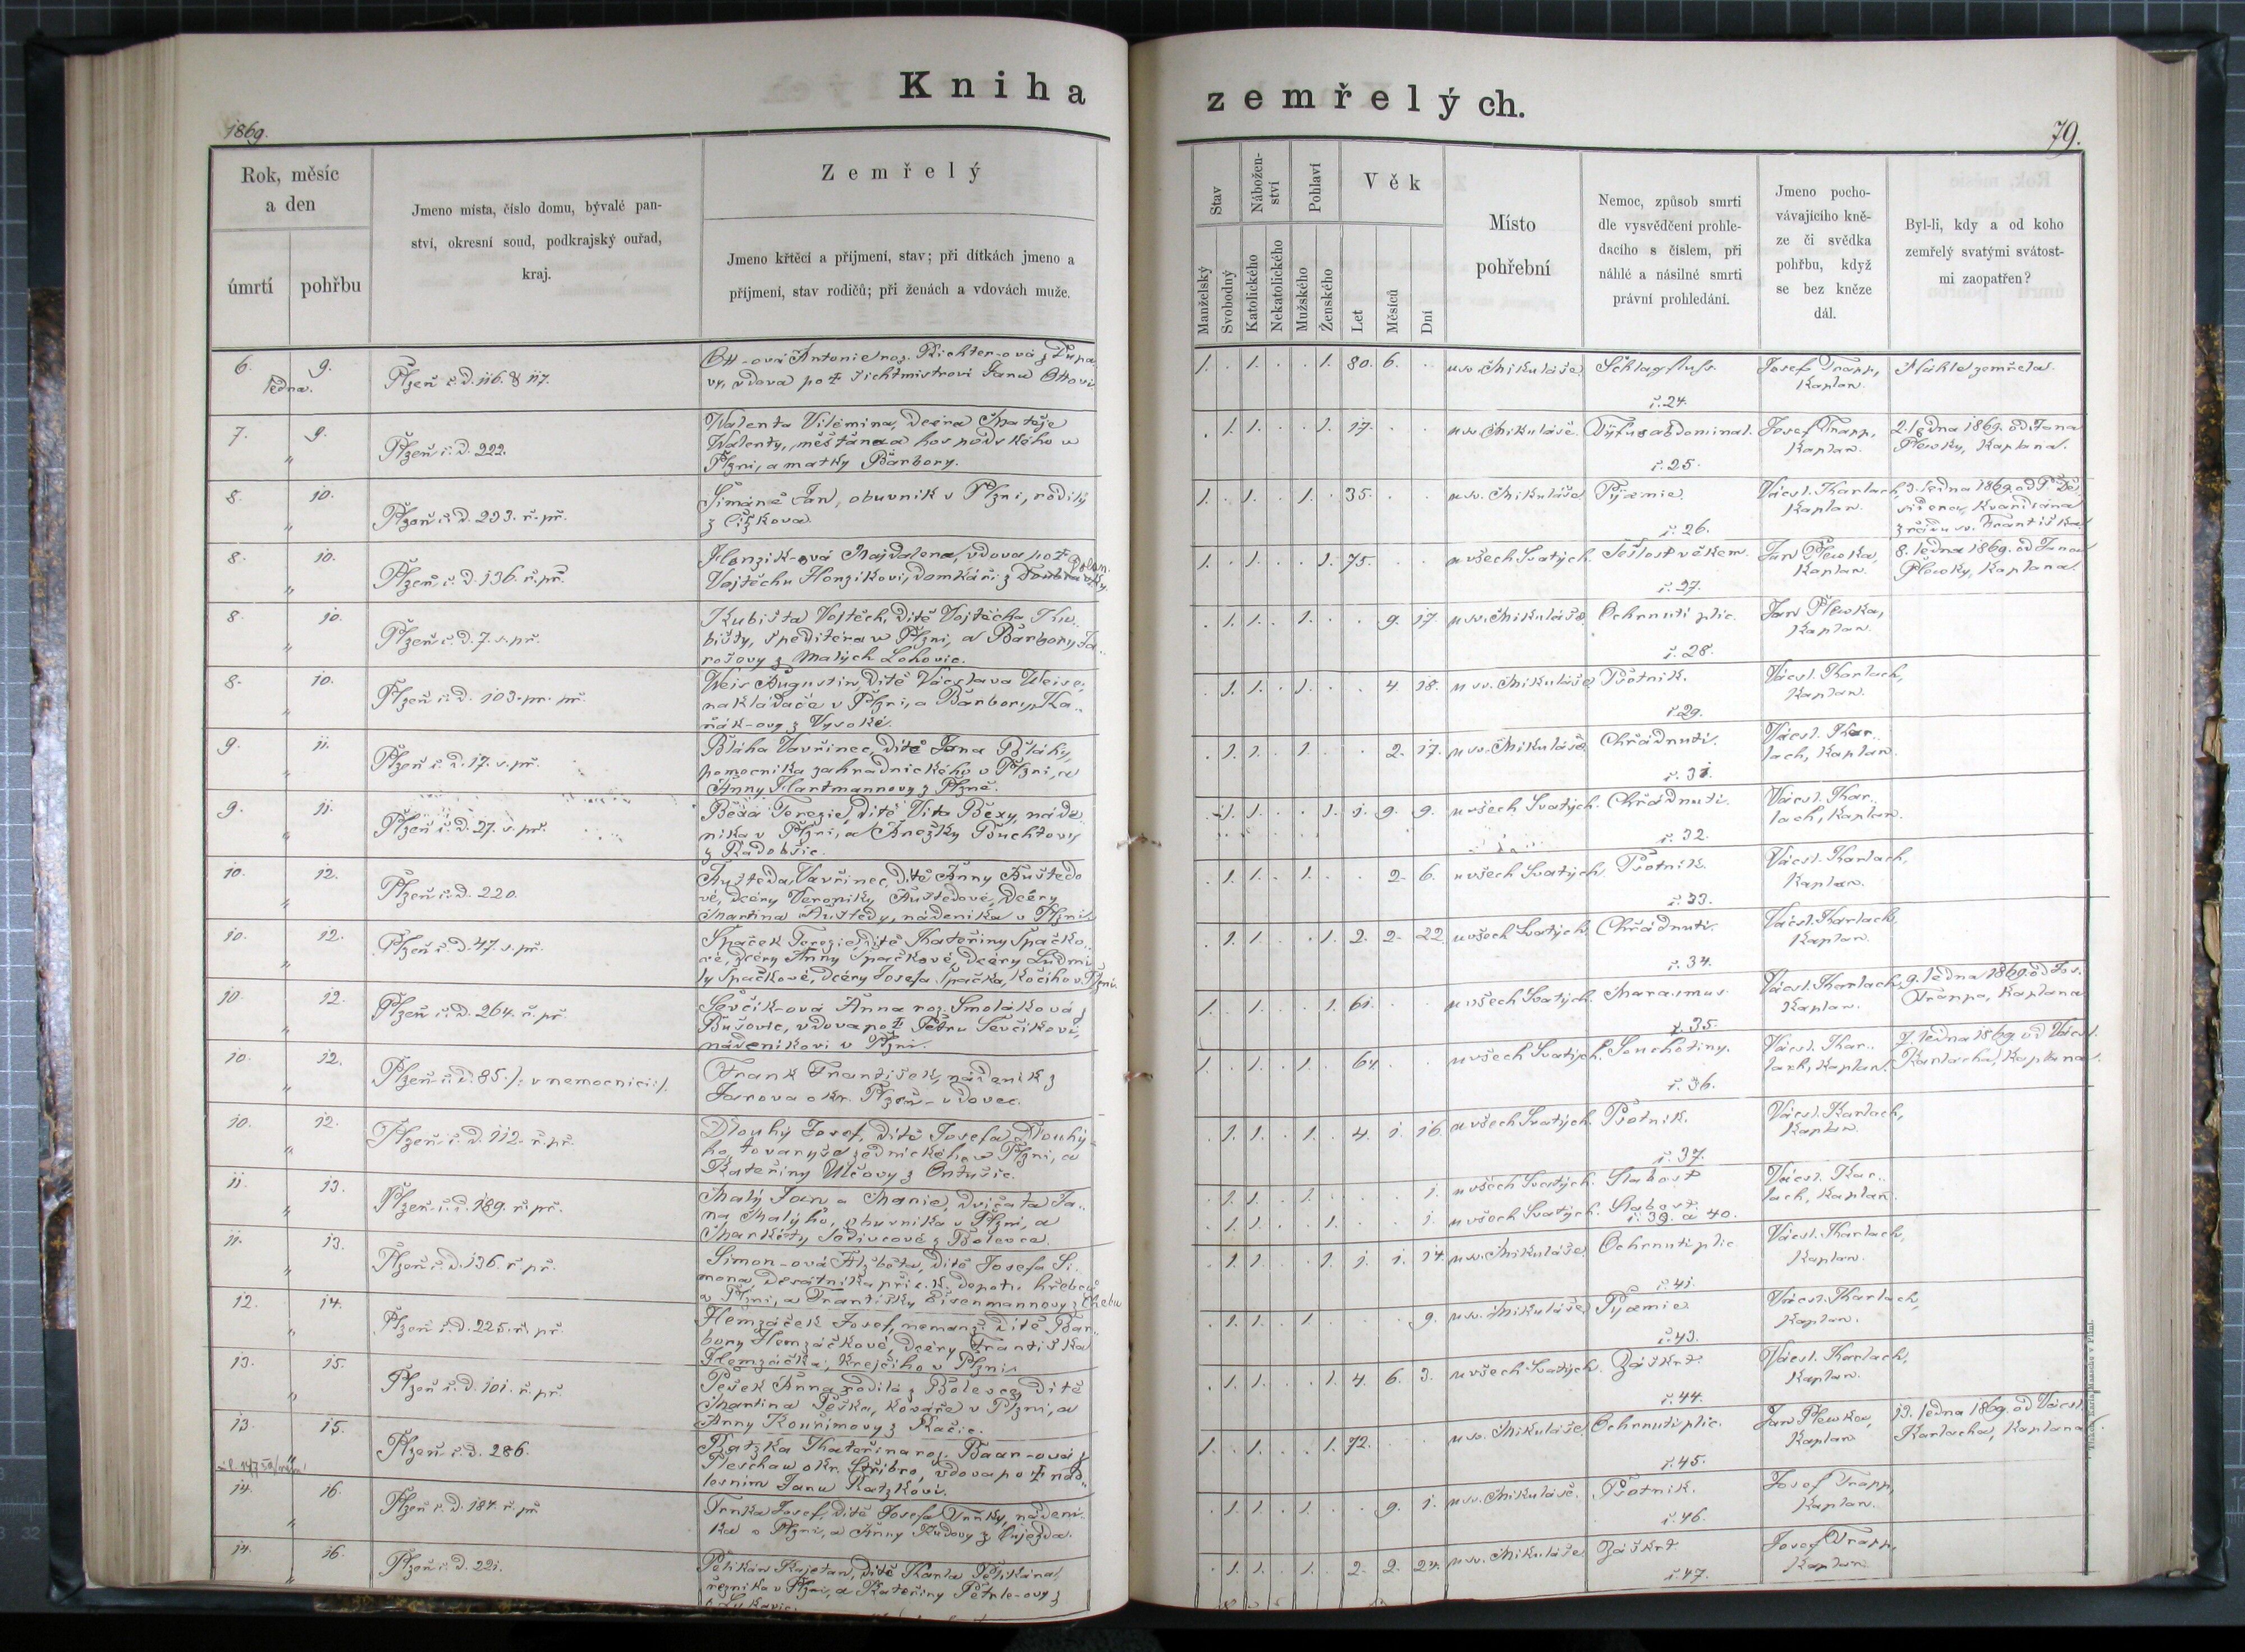 Kniha
zemřelých.
1869.
79.
Rok, měsíc
a den
úmrtí
pohřbu
Jmeno místa, číslo domu, bývalé pan-
ství, okresní soud, podkrajský ouřad,
kraj.
Zemřelý
Jmeno křtěcí a příjmení, stav; při dítkách jmeno a
příjmení, stav rodičů; při ženách a vdovách muže.
Stav
Manželský
Svobodný
Nábožen-
ství
Katolického
Nekatolického
Pohlaví
Mužského
Ženského
Věk
Let
Měsíců
Dní
Místo
pohřební
Nemoc, způsob smrti
dle vysvědčení prohle-
dacího s číslem, při
náhlé a násilné smrti
právní prohledání.
Jmeno pocho-
vávajícího kně-
ze či svědka
pohřbu, když
se bez kněze
dál.
Byl-li, kdy a od koho
zemřelý svatými svátost-
mi zaopatřen?
6. 9.
ledna.
Plzeň č. d. 116. & 117.
Ott-ová Antonie roz. Richter-ová z
vdova po Janu Ottovi
1. 1. 1. 80. 6.
u sv. Mikuláše
Schlagfluss.
č. 24.
Josef Trapp,
Kaplan.
Náhle zemřela.
7. 9.
Plzeň č. d. 222.
Walenta Vilémina, dcéra Matěje
Walenty, měšťana a hospodského v
Plzni, a matky Barbory.
1. 1. 1. 17.
u sv. Mikuláše.
Tyfus abdominal.
č. 25.
Josef Trapp,
Kaplan.
2. ledna 1869. od Jana
Plewky, Kaplana.
8. 10.
Plzeň č. d. 233. ř. př.
Šimáně Jan, obuvník v Plzni, rodilý
z Čížkova.
1. 1. 1. 35.
u sv. Mikuláše
Pyaemie.
č. 26.
Václ. Karlach,
Kaplan.
3. ledna 1869. od P.
Kvardiána
z řádu sv. Františka
8. 10.
Plzeň, č. d. 136. ř. př.
Honzik-ová Majdalena, vdova po
Vojtěchu Honzikovi, domkáři z
1. 1. 1. 75.
u všech Svatých.
Sešlost věkem.
č. 27.
Jan Plewka,
Kaplan.
8. ledna 1869. od Jana
Plewky, Kaplana.
8. 10.
Plzeň č. d. 7. s. př.
Kubišta Vojtěch, dítě Vojtěcha Ku-
bišty, špeditéra v Plzni, a Barbory Ja-
rošovy z Malých Lohovic.
1. 1. 1. 9. 17
u sv. Mikuláše
Ochrnutí plic.
č. 28.
Jan Plewka,
Kaplan.
8. 10.
Plzeň č. d. 103. pr. př.
Weis Augustin, dítě Václava Weise,
nakladače v Plzni, a Barbory Ka-
ňák-ovy z Vysoké.
1. 1. 1. 4. 18.
u sv. Mikuláše
Psotnik.
č. 29.
Václ. Karlach,
Kaplan.
9. 11.
Plzeň č. d. 17. s. př.
Bláha Vavřinec, dítě Jana Bláhy,
pomocníka zahradnického v Plzni, a
Anny Hartmannovy z Plzně.
1. 1. 1. 2. 17.
u sv. Mikuláše
Chřádnutí.
č. 31.
Václ. Kar-
lach, Kaplan.
9. 11.
Plzeň č. d. 27. s. př.
Terezie, dítě Víta náde-
níka v Plzni, a Anežky Buchtovy
z Radobšic.
1. 1. 1. 1. 9. 9.
u všech Svatých.
Chřádnutí.
č. 32.
Václ. Kar-
lach, Kaplan.
10. 12.
Plzeň č. d. 220.
Aušteda Vavřinec, dítě Anny Auštedo-
vé, dcéry Veroniky Auštedové, dcéry
Martina Aušte­dy, nádeníka v Plzni.
1. 1. 1. 2. 6.
u všech Svatých
Psotnik.
č. 33.
Václ. Karlach,
Kaplan.
10. 12.
Plzeň č. d. 47. s. př.
Špaček Terezie, dítě Kateřiny Špačko-
vé, dcéry Anny Špačkové, dcéry Ludmi-
ly Špačkové, dcéry Josefa Špačka, kočího v Plzni.
1. 1. 1. 2. 2. 22
u všech Svatých
Chřádnutí.
č. 34.
Václ. Karlach,
Kaplan.
10. 12.
Plzeň č. d. 264. ř. př.
Ševčik-ová Anna roz. Smoláková z
Bušovic, vdova po Petru Ševčikovi,
nádeníkovi v Plzni.
1. 1. 1. 61.
u všech Svatých.
Marasmus.
č. 35.
Václ. Karlach,
Kaplan.
9. ledna 1869. od Jos.
Trappa, Kaplana
10. 12.
Plzeň č. d. 85. /: v nemocnici :/.
Frank František, nádeník z
Jarova okr. Plzeň - vdovec.
1. 1. 1. 64.
u všech Svatých.
Souchotiny.
č. 36.
Václ. Kar-
lach, Kaplan.
7. ledna 1869. od Václ.
Karlacha, Kaplana.
10. 12.
Plzeň č. d. 112. ř. př.
Dlouhý Josef, dítě Josefa Dlouhý-
ho, tovaryše zednického v Plzni, a
Kateřiny Ulčovy z
1. 1. 1. 4. 1. 16.
u všech Svatých.
Psotnik.
č. 37.
Václ. Karlach,
Kaplan.
11. 13.
Plzeň č. d. 189. ř. př.
Malý Jan a Marie, dvíčata Ja-
na Malýho, obuvníka v Plzni, a
Markéty Šedivcové z Bolevce.
1. 1. 1. 1.
u všech Svatých.
Slabost
1. 1. 1. 1.
u všech Svatých.
Slabost.
č. 39. a 40.
Václ. Kar-
lach, Kaplan.
11. 13.
Plzeň č. d. 136. ř. př.
Simon-ová Alžběta, dítě Josefa Si-
mona, desátníka při c. k. depotu hřebců
v Plzni, a Františky Eisenmannovy z Chebu
1. 1. 1. 1. 1. 14
u sv. Mikuláše
Ochrnutí plic
č. 41.
Václ. Karlach,
Kaplan.
12. 14.
Plzeň č. d. 225. ř. př.
Hemzáček Josef, nemanž. dítě Bar-
bory Hemzáčkové, dcéry Františka
Hemzáčka, krejčího v Plzni.
1. 1. 1. 9.
u sv. Mikuláše
Pyaemie
č. 43.
Václ. Karlach,
Kaplan.
13. 15.
Plzeň č. d. 101. ř. př.
Pešek Anna rodilá z Bolevce, dítě
Martina Peška, kováře v Plzni, a
Anny Kouřimovy z Kačic.
1. 1. 1. 4. 6. 3.
u všech Svatých.
Záškrt.
č. 44.
Václ. Karlach,
Kaplan.
13 15.
Plzeň č. d. 286.
Ratzka Kateřina roz. Baar-ová z
Pleschau okr. Stříbro, vdova po
Janu Ratzkovi.
1. 1. 1. 72.
u sv. Mikuláše
Ochrnutí plic.
č. 45.
Jan Plewka,
Kaplan
13. ledna 1869. od Václ.
Karlacha, Kaplana.
14. 16.
Plzeň č. d. 184. ř. př
Trnka Josef, dítě Josefa Trnky, nádení-
ka v Plzni, a Anny
1. 1. 1. 9. 1.
u sv. Mikuláše.
Psotnik.
č. 46.
Josef Trapp,
Kaplan.
14. 16.
Plzeň č. d. 221.
Pelikán Kajetan, dítě Karla Pelikána,
řezníka v Plzni, a Kateřiny Petrle-ovy z
1. 1. 1. 2. 2. 24
u sv. Mikuláše
Záškrt
č. 47.
Josef Trapp,
Kaplan